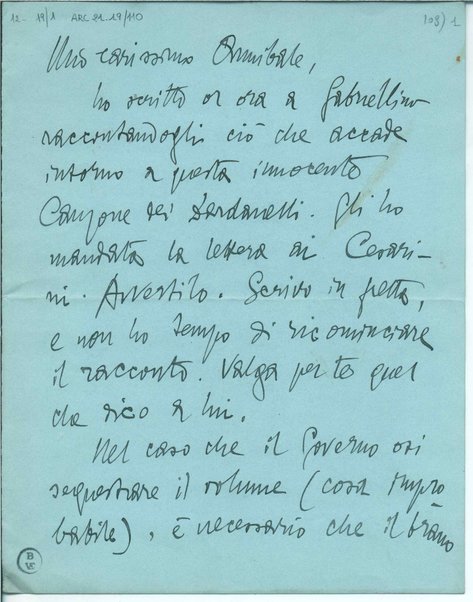 12 - 19/1 ARC 21.19/110 108) 1
Mio carissimo Annibale,
ho scritto or ora a Gabriellino
raccontandogli ciò che accade
intorno a questa innocente
Canzone dei Dardanelli. Gli ho
mandata la lettera di Cesari-
ni. Avvertilo. Scrivo in fretta,
e non ho tempo di ricominciare
il racconto. Valga per te quel
che dico a lui.
Nel caso che il Governo osi
sequestrare il volume (cosa impro
babile), è necessario che il brano
B
VE